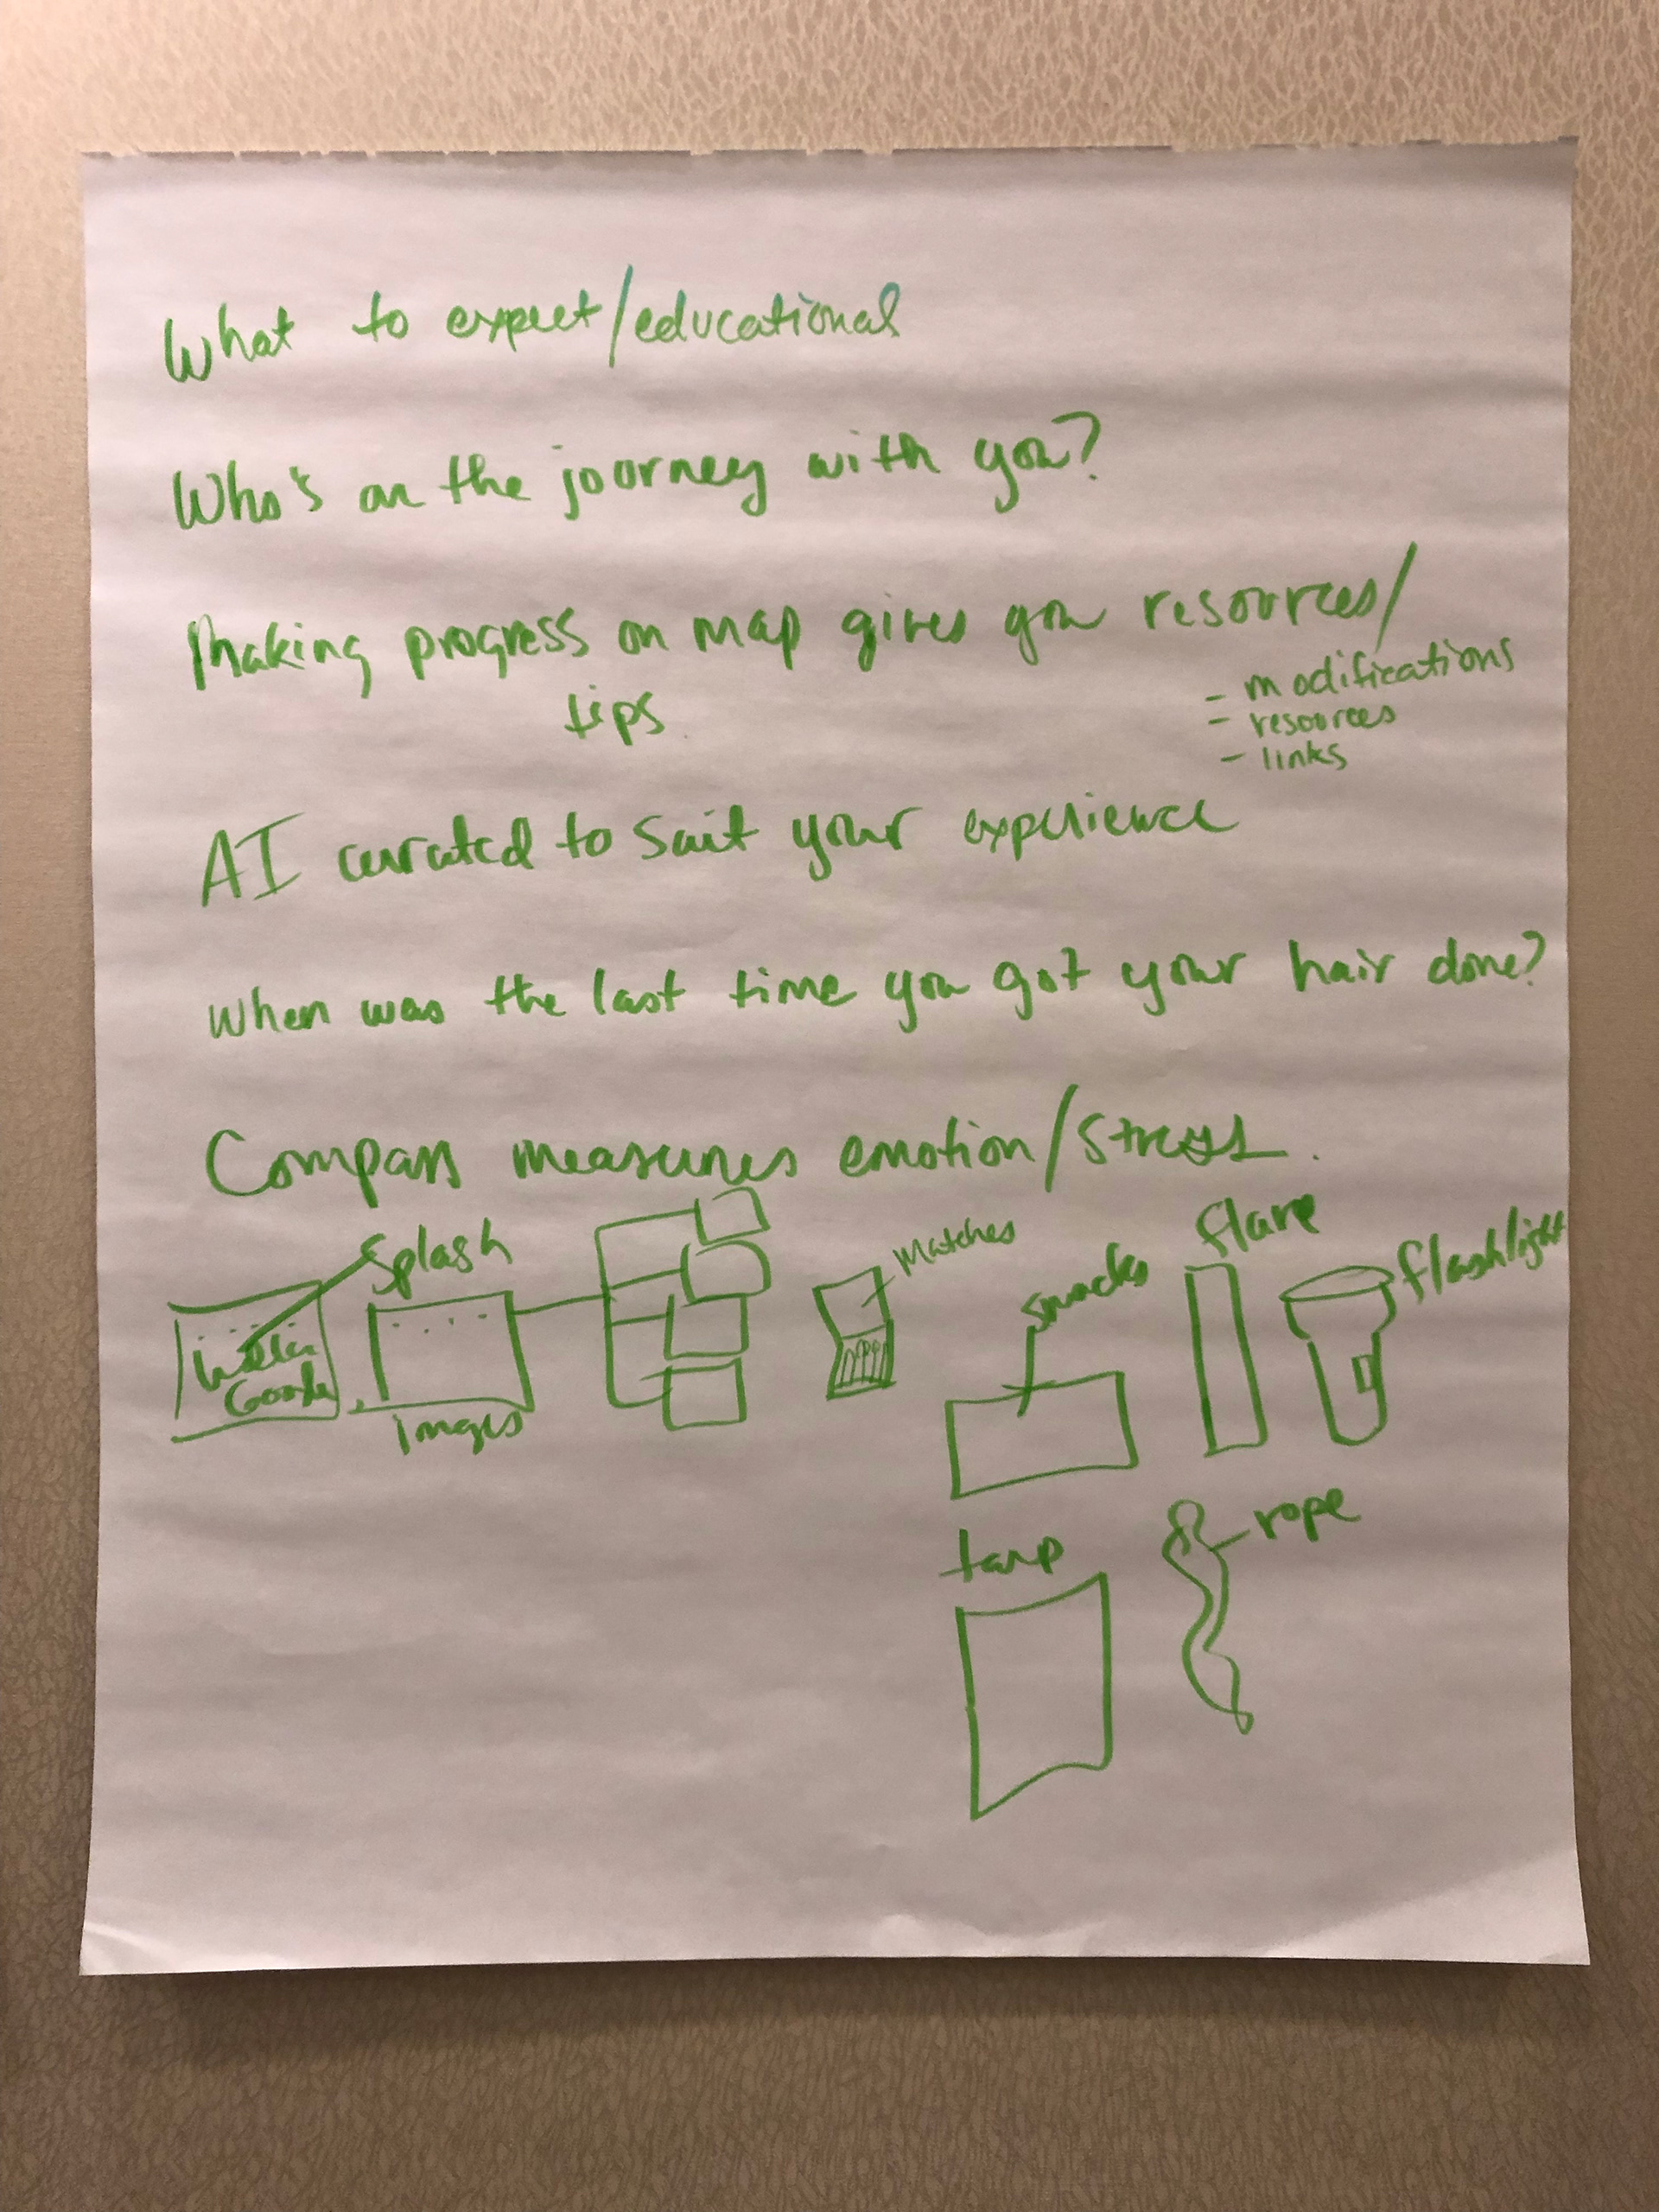 What to expect/educational
Who's on the journey with you?
Making progress on map gives you resources/
tips
- modifications
- resources
- links
AI curated to suit your experience
When was the last time you got your hair done?
Compass measures emotion/stress.
Splash
Images
Matches
snacks
flare
flashlight
tarp
rope